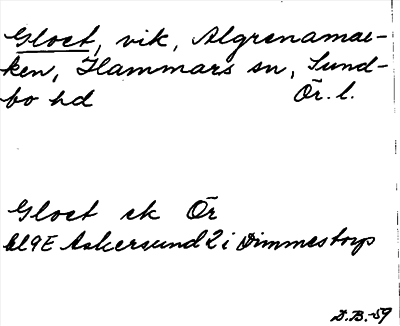 Gloet, vik, Algrenamar-
ken, Hammars sn, Sund-
bo hd Ör. l.
Gloet ek Ör
bl 9E Askersund 2 i Dimmestorp
D.B.-59